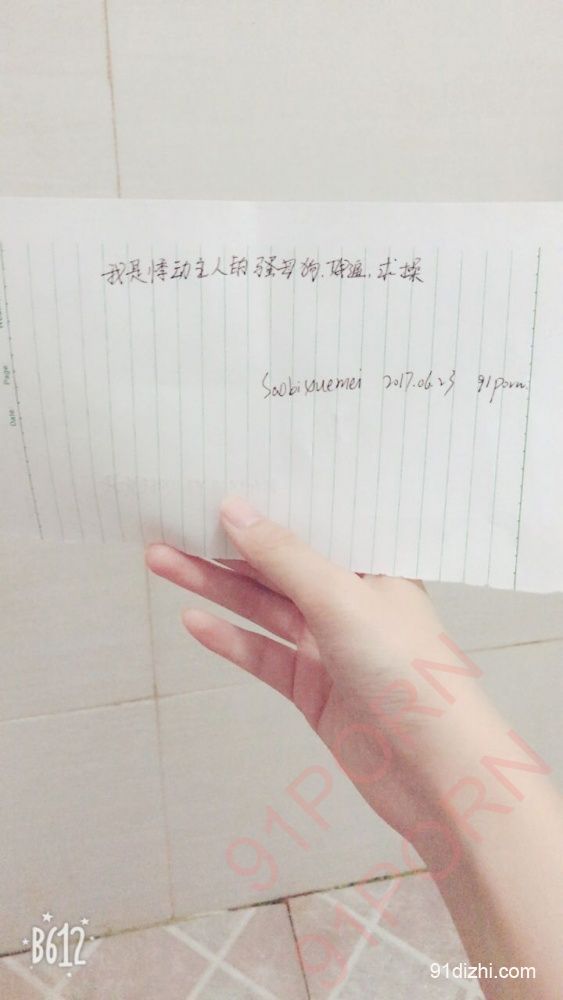 我是悸动主人的骚母狗.
求操
Saobixuemei 2017.06.23 91porn.
Page
Date
91PORN
91PORN
B612
91dizhi.com